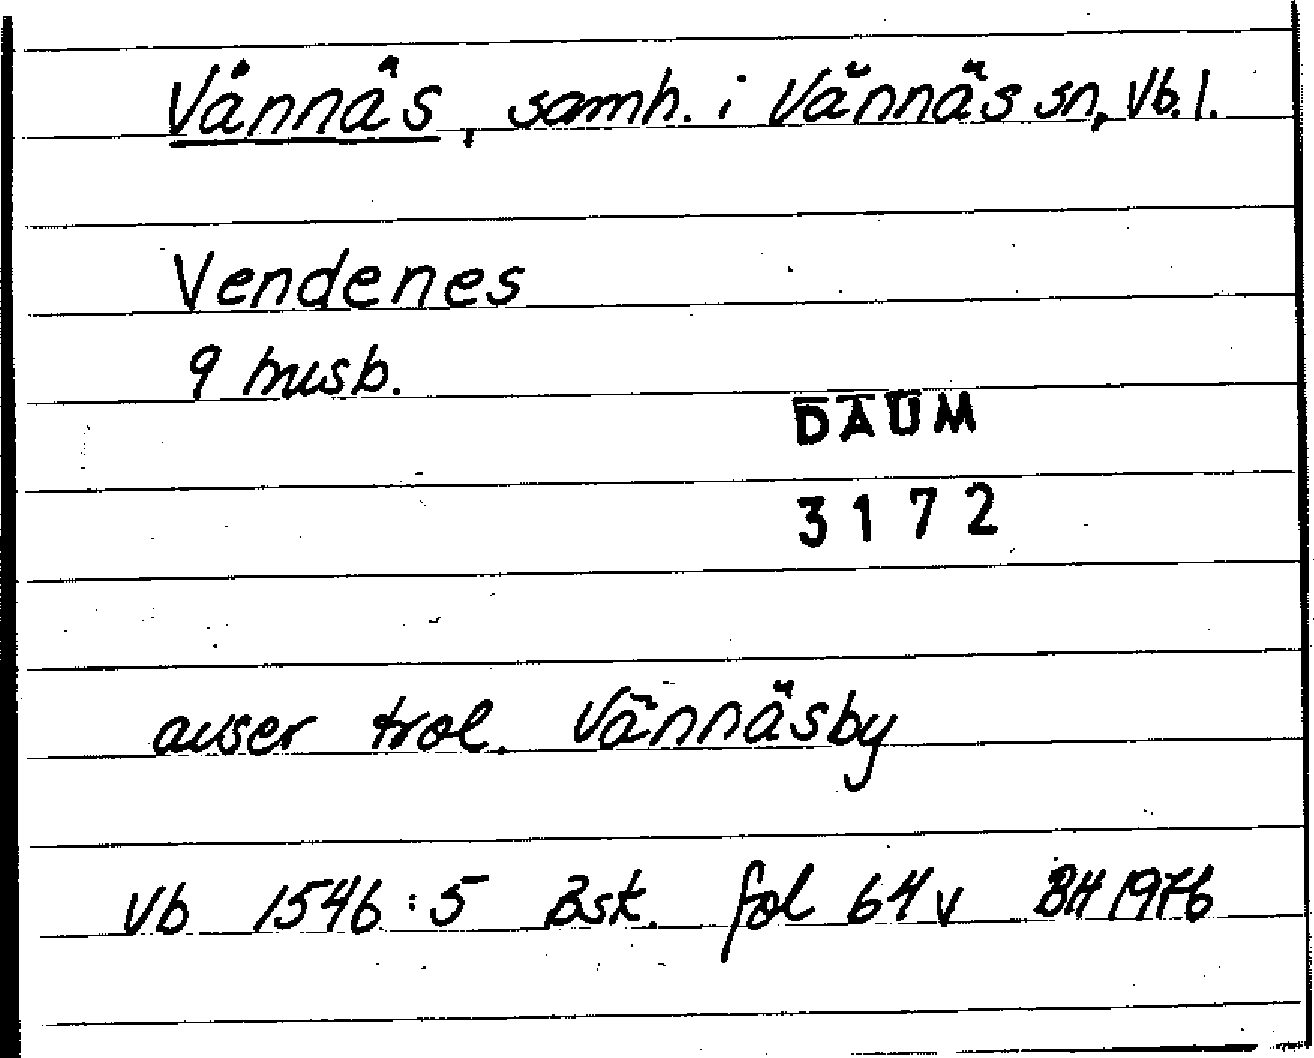 Vännäs, samh. i Vännäs sn, Vb.l.
Vendenes
9 husb.
DAUM
3172
avser trol. Vännäsby
Vb 1546:5 Bsk. fol 64 v BH 1976